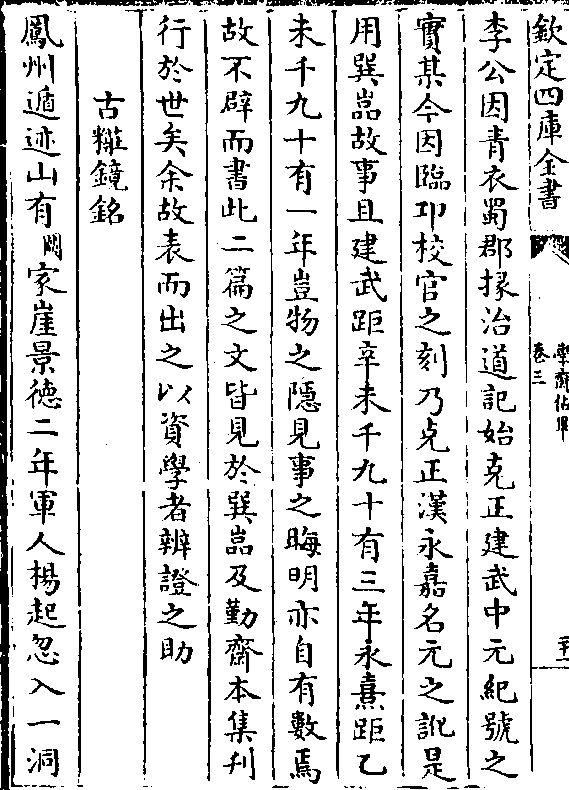 欽定四庫全書
學齋佔畢
卷三
李公因青衣蜀郡掾治道記始克正建武中元紀號之
實某今因臨邛校官之刻乃克正漢永嘉名元之訛是
用巽嵓故事且建武距辛未千九十有三年永熹距乙
未千九十有一年豈物之隱見事之晦明亦自有數焉
故不辟而書此二篇之文皆見於巽嵓及勤齋本集刋
行於世矣余故表而出之以資學者辨證之助
古糚鏡銘
鳳州遁迹山有闕家崖景德二年軍人楊起忽入一洞